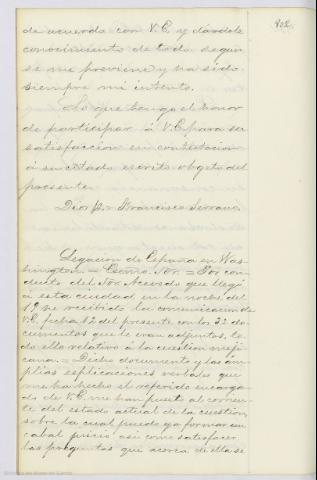 802.
de acuerdo con V.E. y dandole
conocimiento de todo segun
se me previene y ha sido
siempre mi intento.
Lo que tengo el honor
de participar á V.E. para su
satisfaccion en contestacion
á su citado escrito objeto del
presente.
Dios &ª = Francisco Serrano
Legacion de España en Was-
hington. = Escmo. Sor. = Por con-
ducto del Sor. Acevedo que llegó
á esta ciudad en la noche del
19 he recibido la comunicacion de
V.E. fecha 12 del presente con los 32 do-
cumentos que le ivan adjuntos, to-
do ello relativo á la cuestion meji-
cana. = Dichos documentos y las am-
plias esplicaciones verbales que
me ha hecho el referido encarga-
do de V.E. me han puesto al corrien-
te del estado actual de la cuestion
sobre la cual puedo ya formar un
cabal juicio asi como satisfacer
las preguntas que acerca de ella se